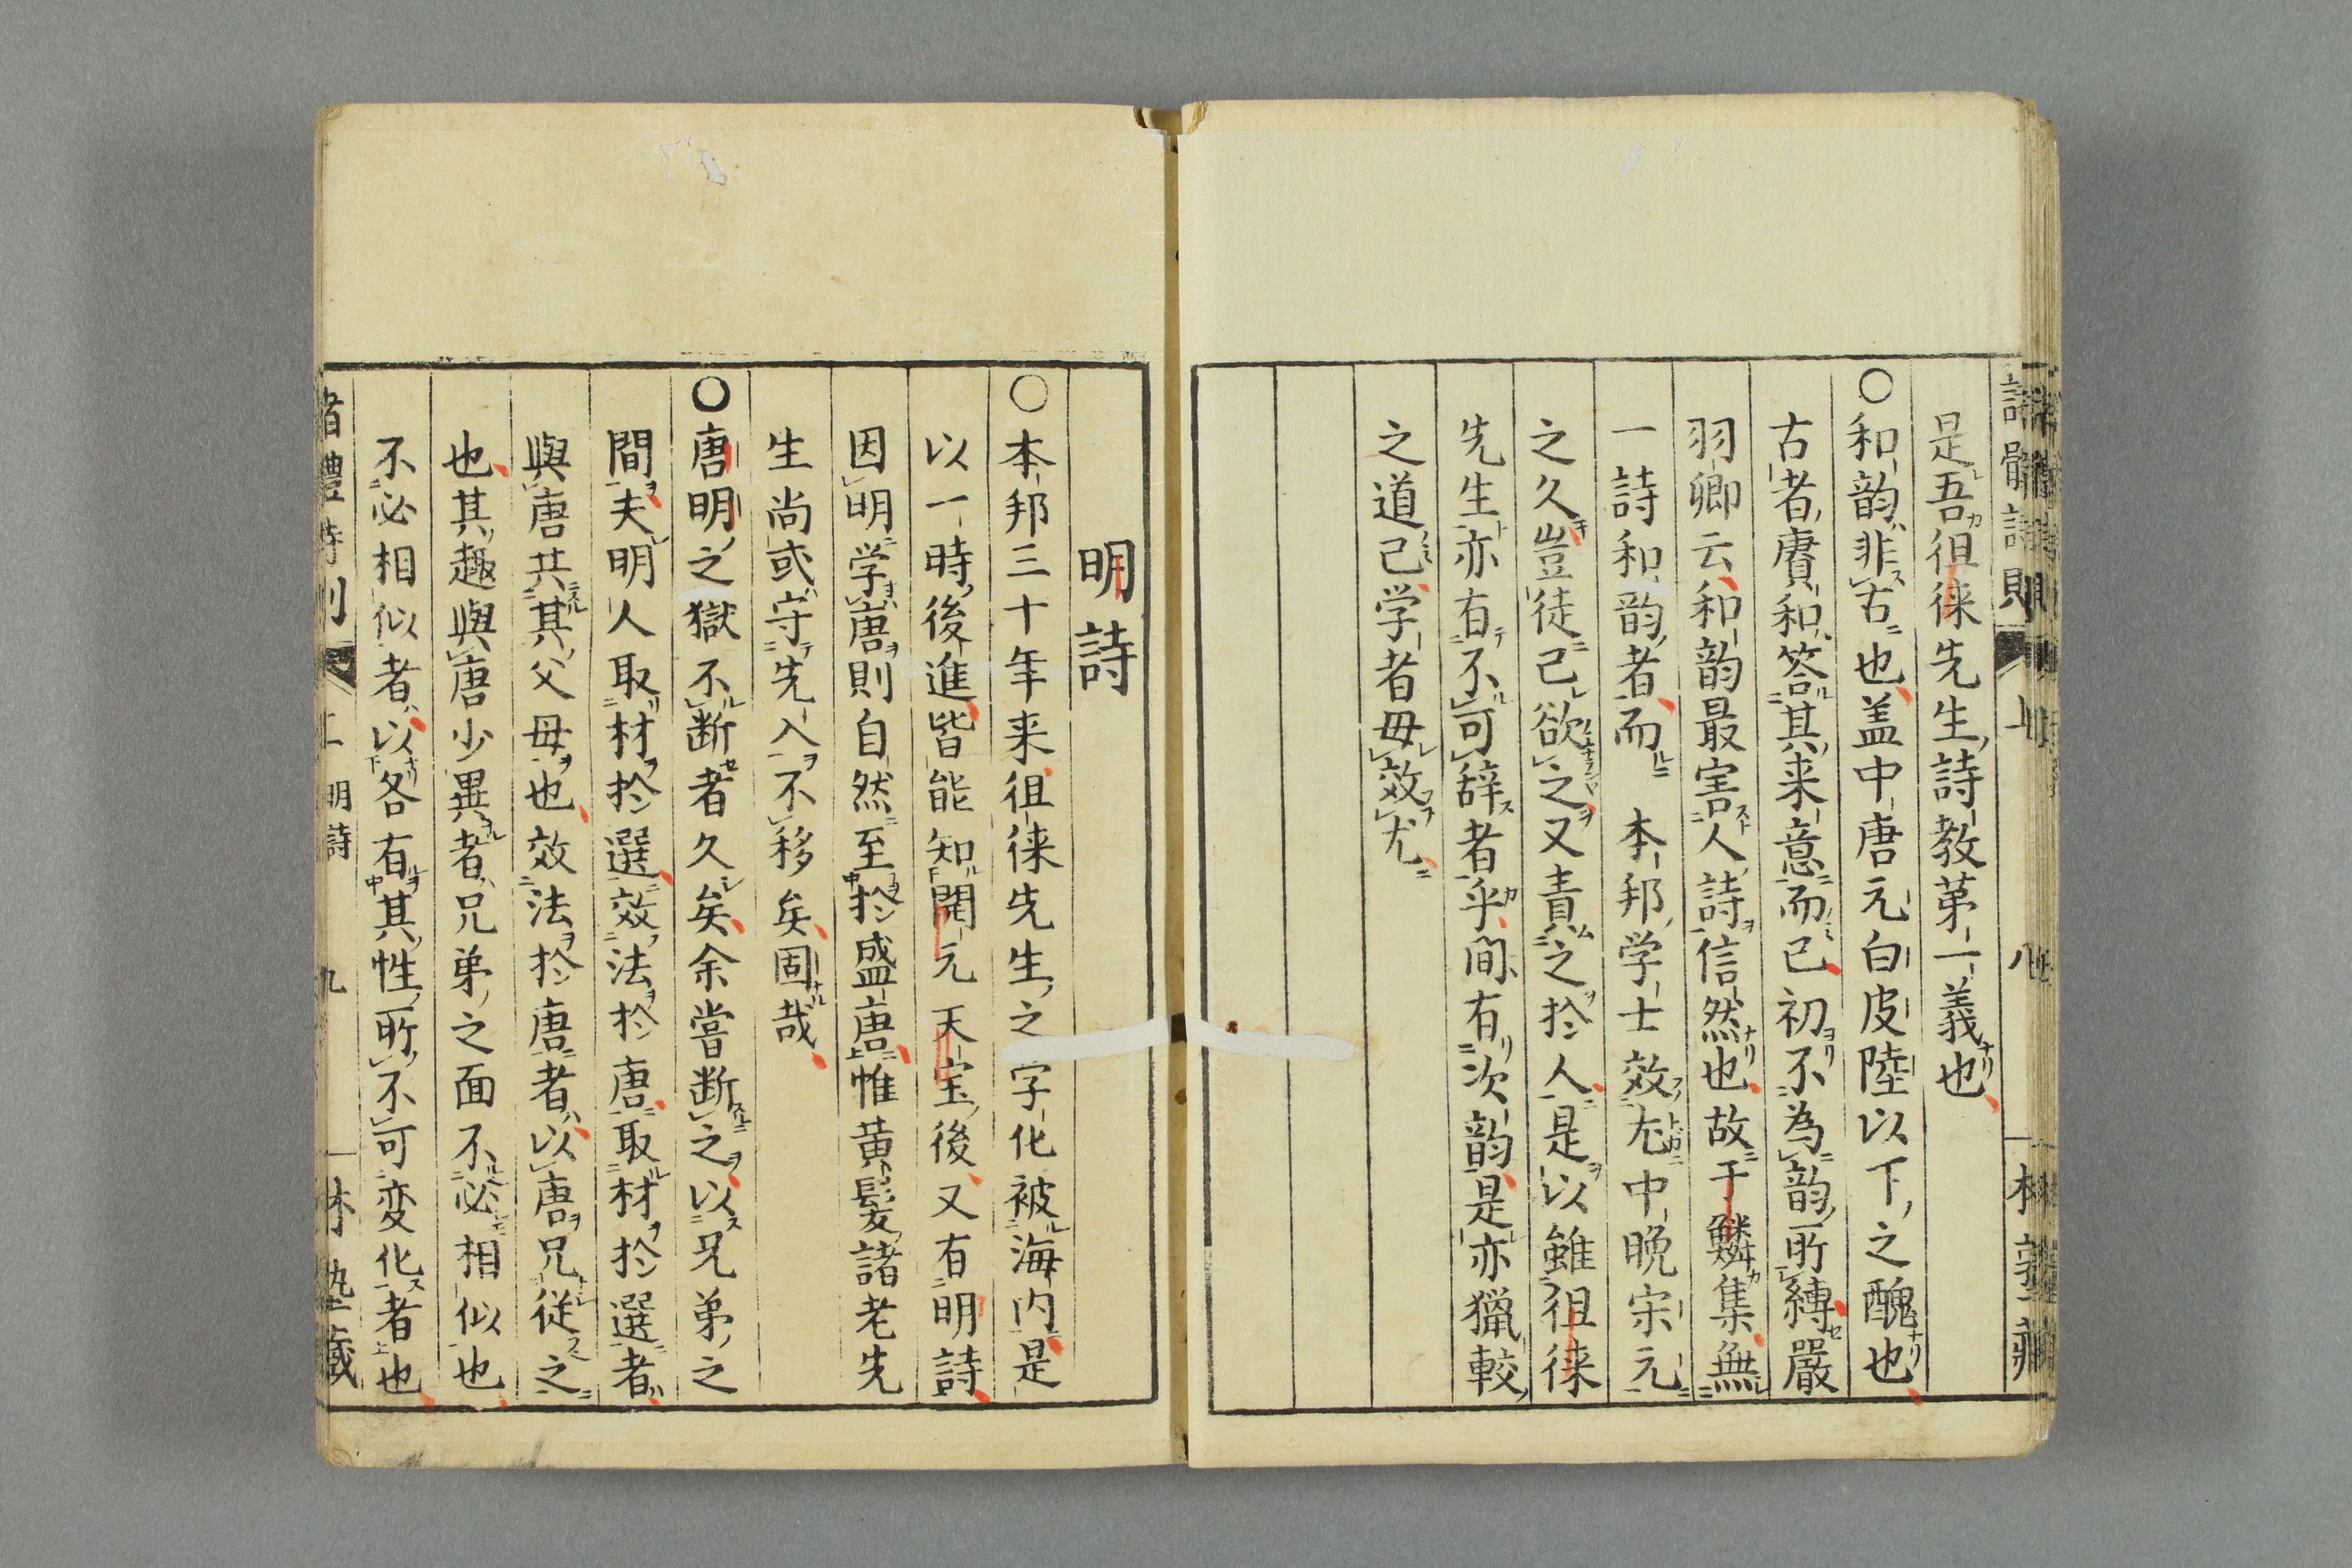 是吾徂徠先生詩教第一義也
○和韵非古也盖中唐元白皮陸以下之醜也
古者賡和答其来意而已初不為韵所縛嚴
羽卿云和韵最害人詩信然也故于鱗集無
一詩和韵者而 本邦学士效尤中晩宋元
之久豈徒己欲之又責之於人是以雖徂徠
先生亦有不可辞者乎間有次韵是亦獵較
之道已学者毋效尤
明詩
○本邦三十年来徂徠先生之字化被海内是
以一時後進皆能知開元天宝後又有明詩
因明学唐則自然至於盛唐惟黄髪諸老先
生尚或守先入不移矣固哉
○唐明之獄不断者久矣余嘗断之以兄弟之
間夫明人取材於選效法於唐取材於選者
與唐共其父母也效法於唐者以唐兄従之
也其趣與唐少異者兄弟之面不必相似也
不必相似者以各有其性所不可変化者也
明詩 九